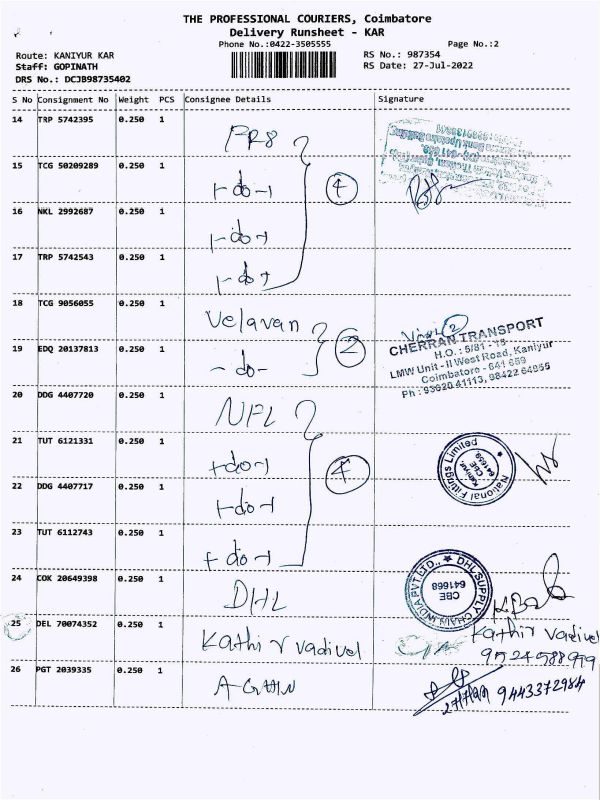 THE PROFESSIONAL COURIERS, Coimbatore
Delivery Runsheet - KAR
Phone No.:0422-3505555
Page No.:2
Route: KANIYUR KAR
RS No.: 987354
Staff: GOPINATH
RS Date: 27-Jul-2022
DRS No.: DCJB98735402
S No Consignment No Weight PCS Consignee Details Signature
14 TRP 5742395 0.250 1 PRS
15 TCG 50209289 0.250 1 -do- 4
16 NKL 2992687 0.250 1 -do-
17 TRP 5742543 0.250 1 -do-
18 TCG 9056055 0.250 1 Velavan
2
CHERRAN TRANSPORT
19 EDQ 20137813 0.250 1 -do- 2
H.O.: 5/81 - 18
LMW Unit - II West Road, Kaniyur
Coimbatore - 641 659
Ph : 93620 41113, 98422 64855
20 DDG 4407720 0.250 1 NFL
21 TUT 6121331 0.250 1 -do- 4
National Fittings Limited
Kaniyur
CBE
641659
22 DDG 4407717 0.250 1 -do-
23 TUT 6112743 0.250 1 -do-
24 COK 20649398 0.250 1 DHL
DHL SUPPLY CHAIN INDIA PVT LTD.,
CBE
641668
25 DEL 70074352 0.250 1 Kathirvadivel
Kathirvadivel
26 PGT 2039335 0.250 1
9443372984